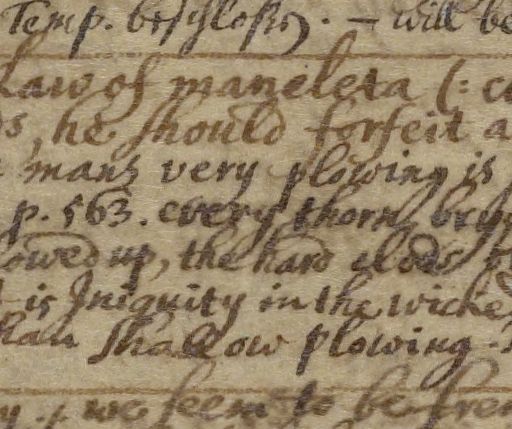 Temp. – will be
Law of maneleta (: c
he should forfeit a
mans very plowing is
p. 563. every thorn, bry
owed up, the hard clods
is Iniquity in the wicke
than shallow plowing.
we seem to be